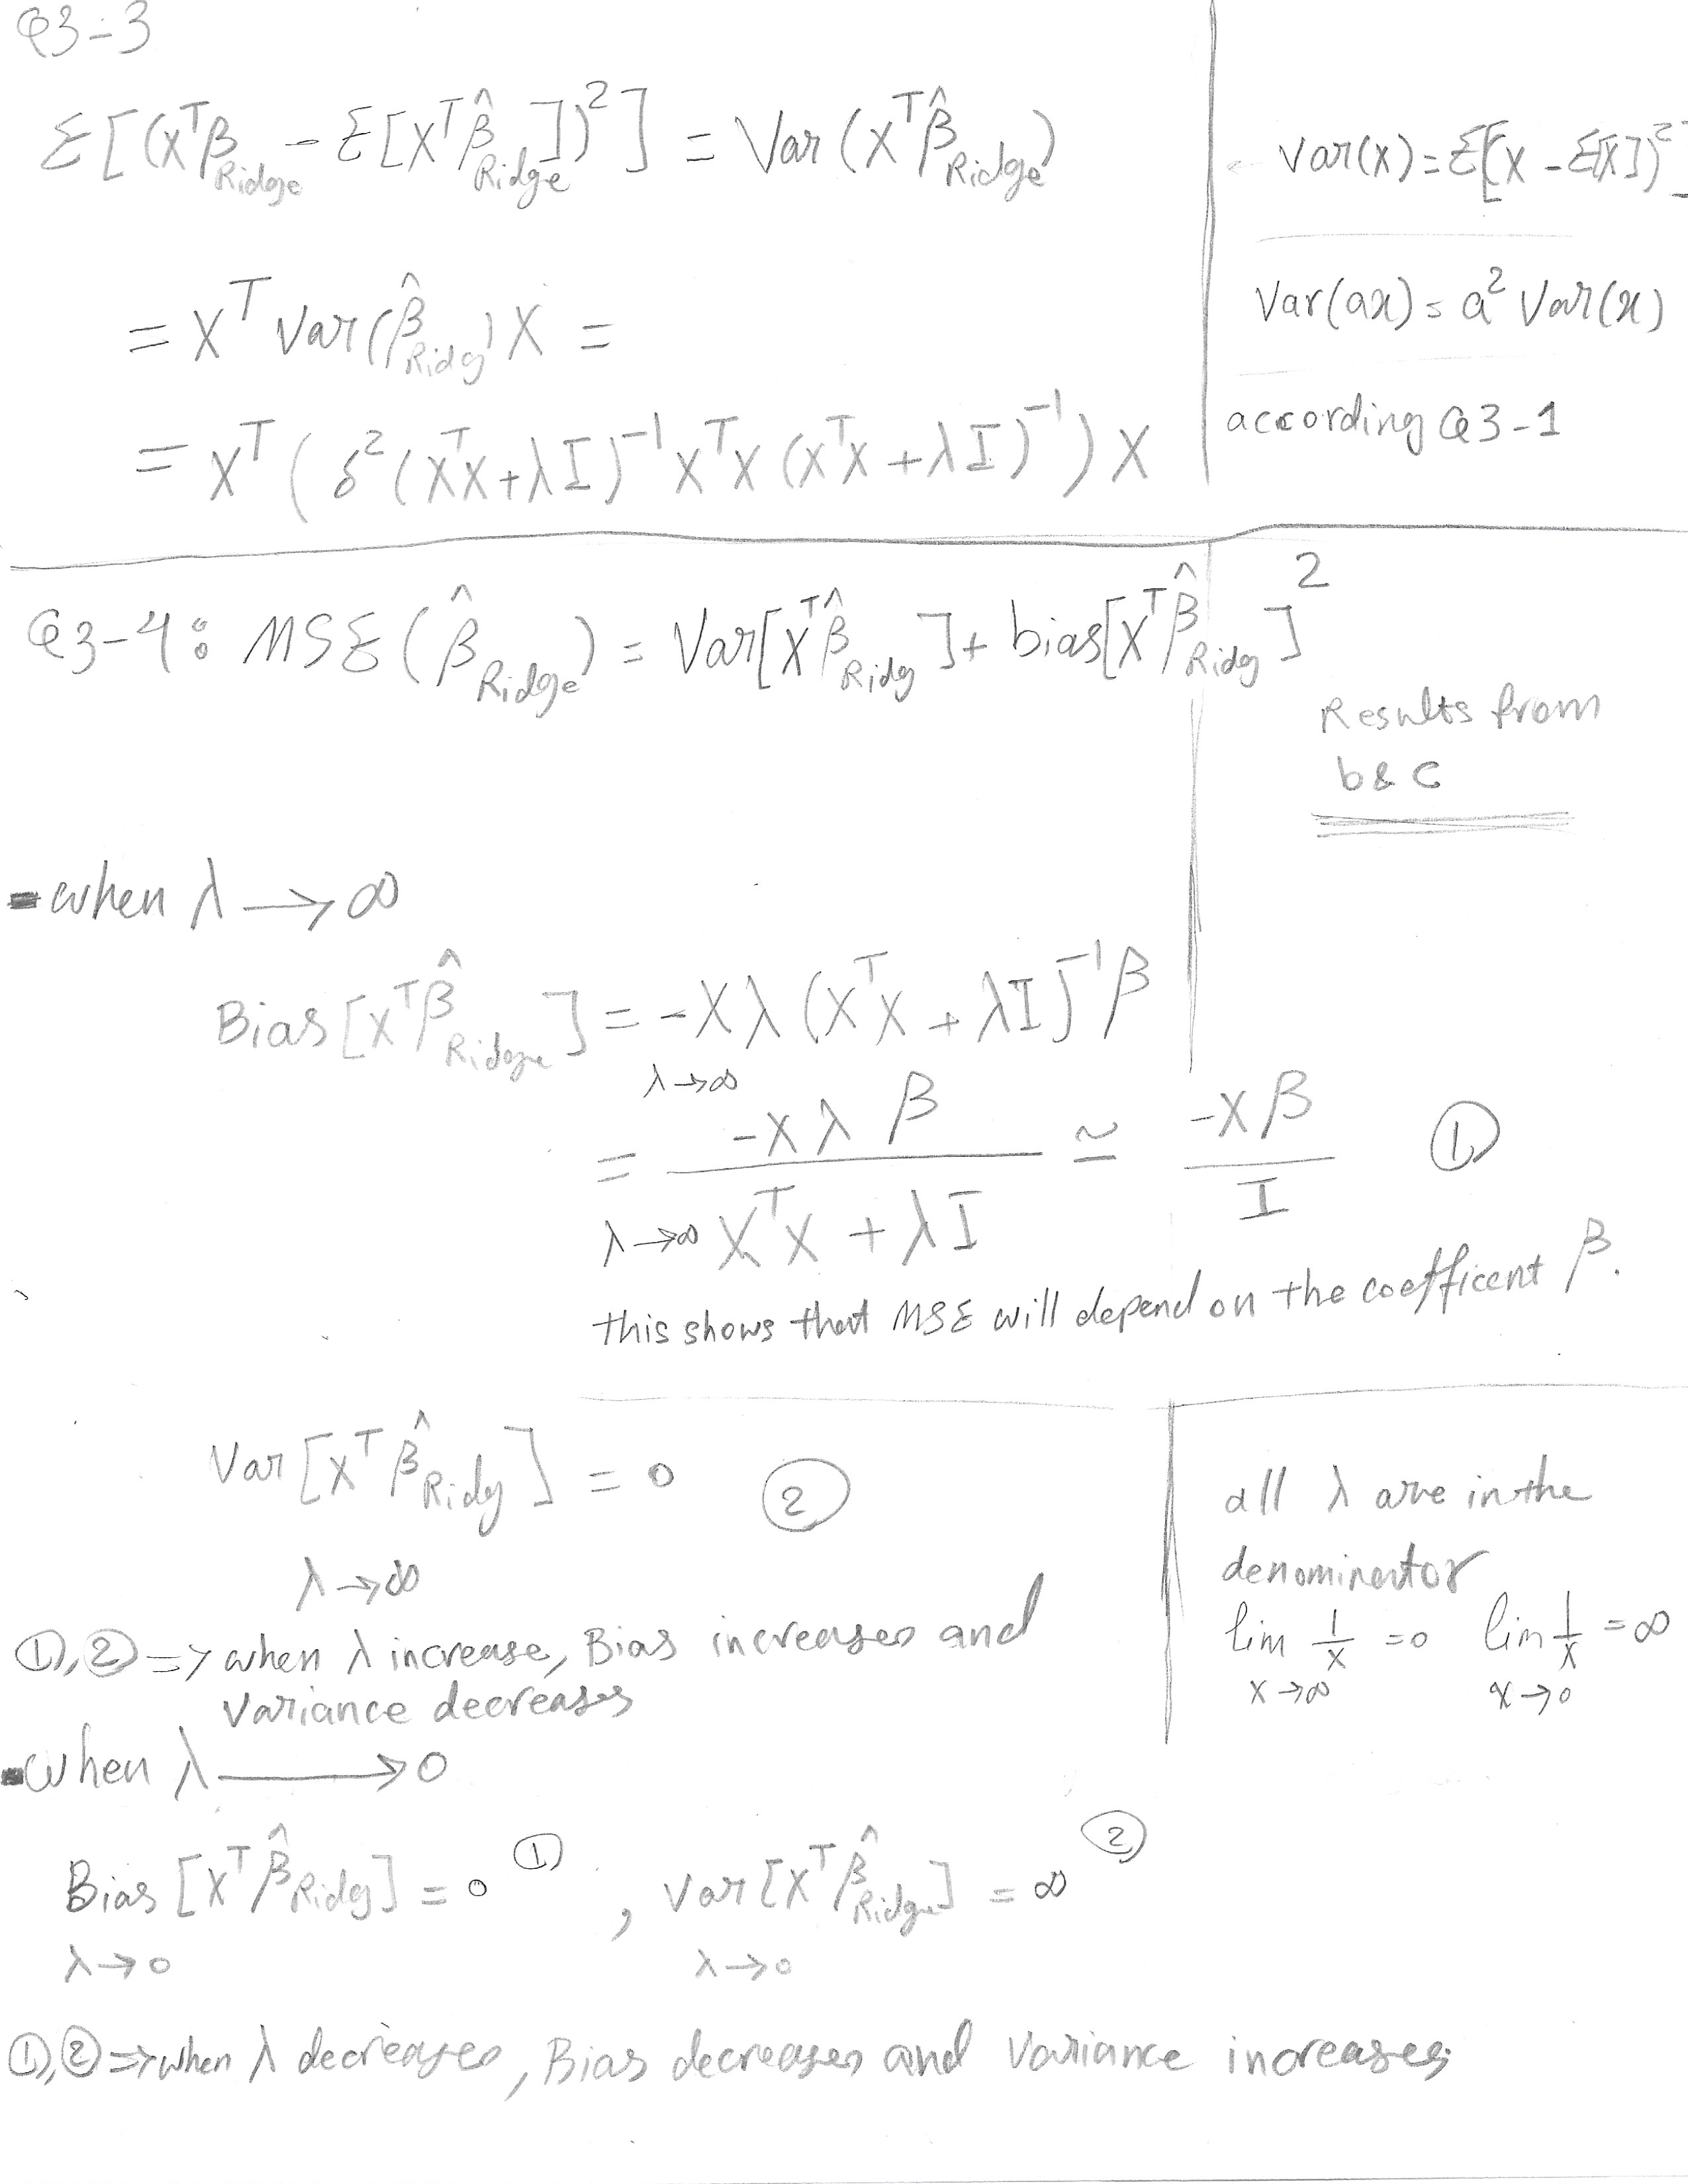 Q3-3
Ɛ[(X^Tβ_Ridge - Ɛ[X^Tβ̂_Ridge])^2] = Var(X^Tβ̂_Ridge)
Var(X) = Ɛ[(X - Ɛ[X])^2]
= X^T Var(β̂_Ridg) X =
Var(ax) = a^2 Var(x)
= X^T(δ^2(X^TX+λI)^-1 X^TX (X^TX+λI)^-1) X
according Q3-1
Q3-4: MSƐ(β̂_Ridge) = Var[X^Tβ̂_Ridg] + bias[X^Tβ̂_Ridg]^2
Results from
b & c
- when λ → ∞
Bias[X^Tβ̂_Ridge] = -Xλ(X^TX + λI)^-1 β
λ→∞
= -Xλβ / X^TX + λI ≃ -Xβ / I ①
λ→∞
this shows that MSƐ will depend on the coefficent β.
Var[X^Tβ̂_Ridg] = 0 ②
λ→∞
all λ are in the
denominator
lim 1/x = 0 lim 1/x = ∞
x→∞ x→0
①,② => when λ increase, Bias increases and
Variance decreases
- when λ → 0
Bias[X^Tβ̂_Ridg] = 0 ① , Var[X^Tβ̂_Ridge] = ∞ ②
λ→0 λ→0
①,② => when λ decreases, Bias decreases and Variance increases